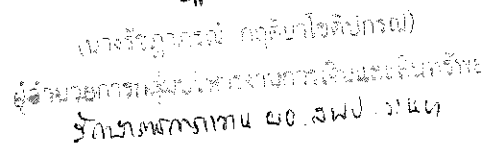 (นางรัชฎาภรณ์ กฤติยาโชติปกรณ์)
ผู้อำนวยการกลุ่มบริหารงานการเงินและสินทรัพย์
รักษาการ ผอ.สพป.